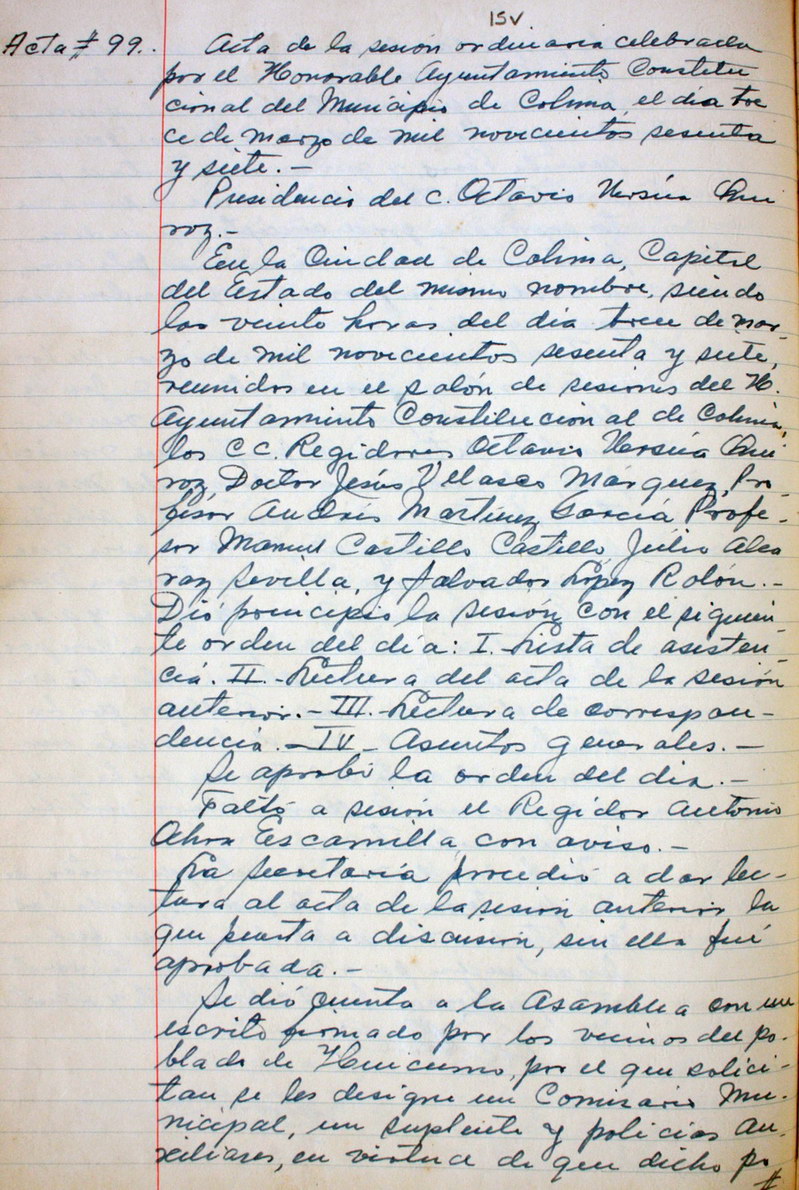 15v
Acta # 99.
Acta de la sesión ordinaria celebrada
por el Honorable Ayuntamiento Constitu
cional del Municipio de Colima, el día tre
ce de marzo de mil novecientos sesenta
y siete.-
Presidencia del C. Octavio Ursúa Qui
roz.-
En la Ciudad de Colima, Capital
del Estado del mismo nombre, siendo
las veinte horas del día trece de mar-
zo de mil novecientos sesenta y siete,
reunidos en el salón de sesiones del H.
Ayuntamiento Constitucional de Colima,
los CC. Regidores Octavio Ursúa Qui
roz, Doctor Jesús Velasco Márquez, Pro-
fesor Andrés Martínez García Profe-
sor Manuel Castillo Castillo, Julio Alca
raz Sevilla, y Salvador López Rolón.-
Dió principio la sesión con el siguien-
te orden del día: I.-Lista de asisten-
cia. II.-Lectura del acta de la sesión
anterior.- III.-Lectura de correspon-
dencia.-IV-Asuntos generales.-
Se aprobó la orden del día.-
Faltó a sesión el Regidor Antonio
Escamilla, con aviso.-
La Secretaría procedió a dar lec-
tura al acta de la sesión anterior la
que puesta a discusión, sin ella fué
aprobada.-
Se dió cuenta a la Asamblea con un
escrito firmado por los vecinos del po-
blado de por el que solici-
tan se les designe un Comisario Mu-
nicipal, un suplente y policías au-
xiliares, en virtud de que dicho po
#